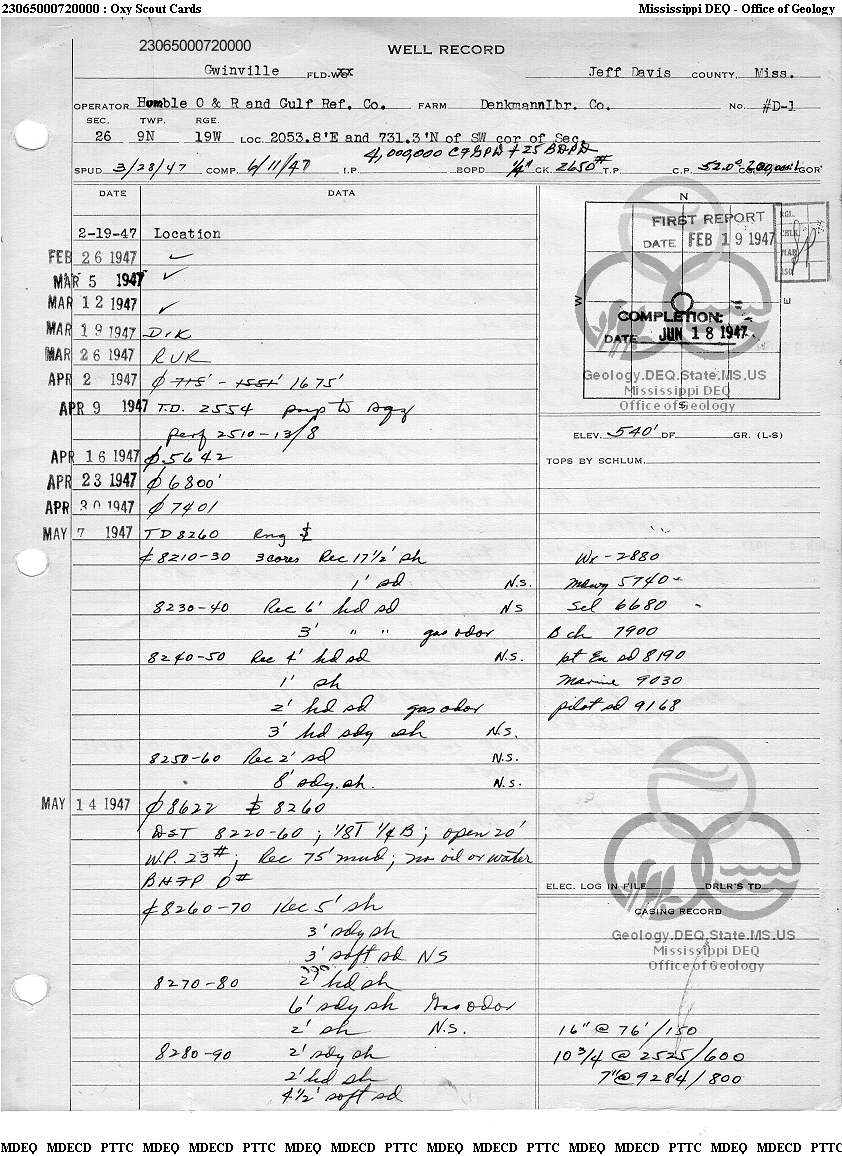 23065000720000 : Oxy Scout Cards Mississippi DEQ - Office of Geology
23065000720000
WELL RECORD
Gwinville FLD-W Jeff Davis COUNTY, Miss.
OPERATOR Humble O & R and Gulf Ref. Co. FARM DenkmannLbr. Co. No. #D-1
SEC. TWP. RGE.
26 9N 19W LOC. 2053.8'E and 731.3'N of SW cor of Sec.
4,000,000 CFGPD + 25 BDPD
SPUD 3/28/47 COMP. 6/11/47 I.P. BOPD 1/4" CK. 2650# T.P. C.P. 52.0° GOR
DATE DATA
2-19-47 Location
FEB 26 1947 ✓
MAR 5 1947 ✓
MAR 12 1947 ✓
MAR 19 1947 Drk
MAR 26 1947 RUR
APR 2 1947 ⌀ 715' - 1551' 1675'
APR 9 1947 T.D. 2554 prep to sqz
perf 2510-12/8
APR 16 1947 ⌀ 5642
APR 23 1947 ⌀ 6800'
APR 30 1947 ⌀ 7401
MAY 7 1947 TD 8260 Rng
8210-30 3 cores Rec 17 1/2' sh
1' sd N.S.
8230-40 Rec 6' hd sd NS
3' " " gas odor
8240-50 Rec 4' hd sd N.S.
1' sh
2' hd sd gas odor
3' hd sdy sh N.S.
8250-60 Rec 2' sd N.S.
8' sdy. sh. N.S.
MAY 14 1947 ⌀ 8622 8260
DST 8220-60 ; 1/8T 1/4B ; open 20'
W.P. 23# ; Rec 75' mud ; no oil or water
BHFP 0#
8260-70 Rec 5' sh
3' sdy sh
3' soft sd NS
8270-80 2' hd sh
6' sdy sh Gas odor
2' sh N.S.
8280-90 2' sdy sh
2' hd sh
4 1/2' soft sd
N
FIRST REPORT
DATE FEB 19 1947
REG.
CHLK
MAP
ISO
W E
COMPLETION:
DATE JUN 18 1947
Geology.DEQ.State.MS.US
Mississippi DEQ
Office of Geology
S
ELEV. 540' DF. GR. (L-S)
TOPS BY SCHLUM.
Wx - 2880
Mawy 5740
Sel 6680
B ch 7900
pt Eu sd 8190
Marine 9030
pilot sd 9168
ELEC. LOG IN FILE DRLR'S TD
CASING RECORD
Geology.DEQ.State.MS.US
Mississippi DEQ
Office of Geology
16" @ 76'/150
10 3/4 @ 2525/600
7" @ 9284/800
MDEQ MDECD PTTC MDEQ MDECD PTTC MDEQ MDECD PTTC MDEQ MDECD PTTC MDEQ MDECD PTTC MDEQ MDECD PTTC